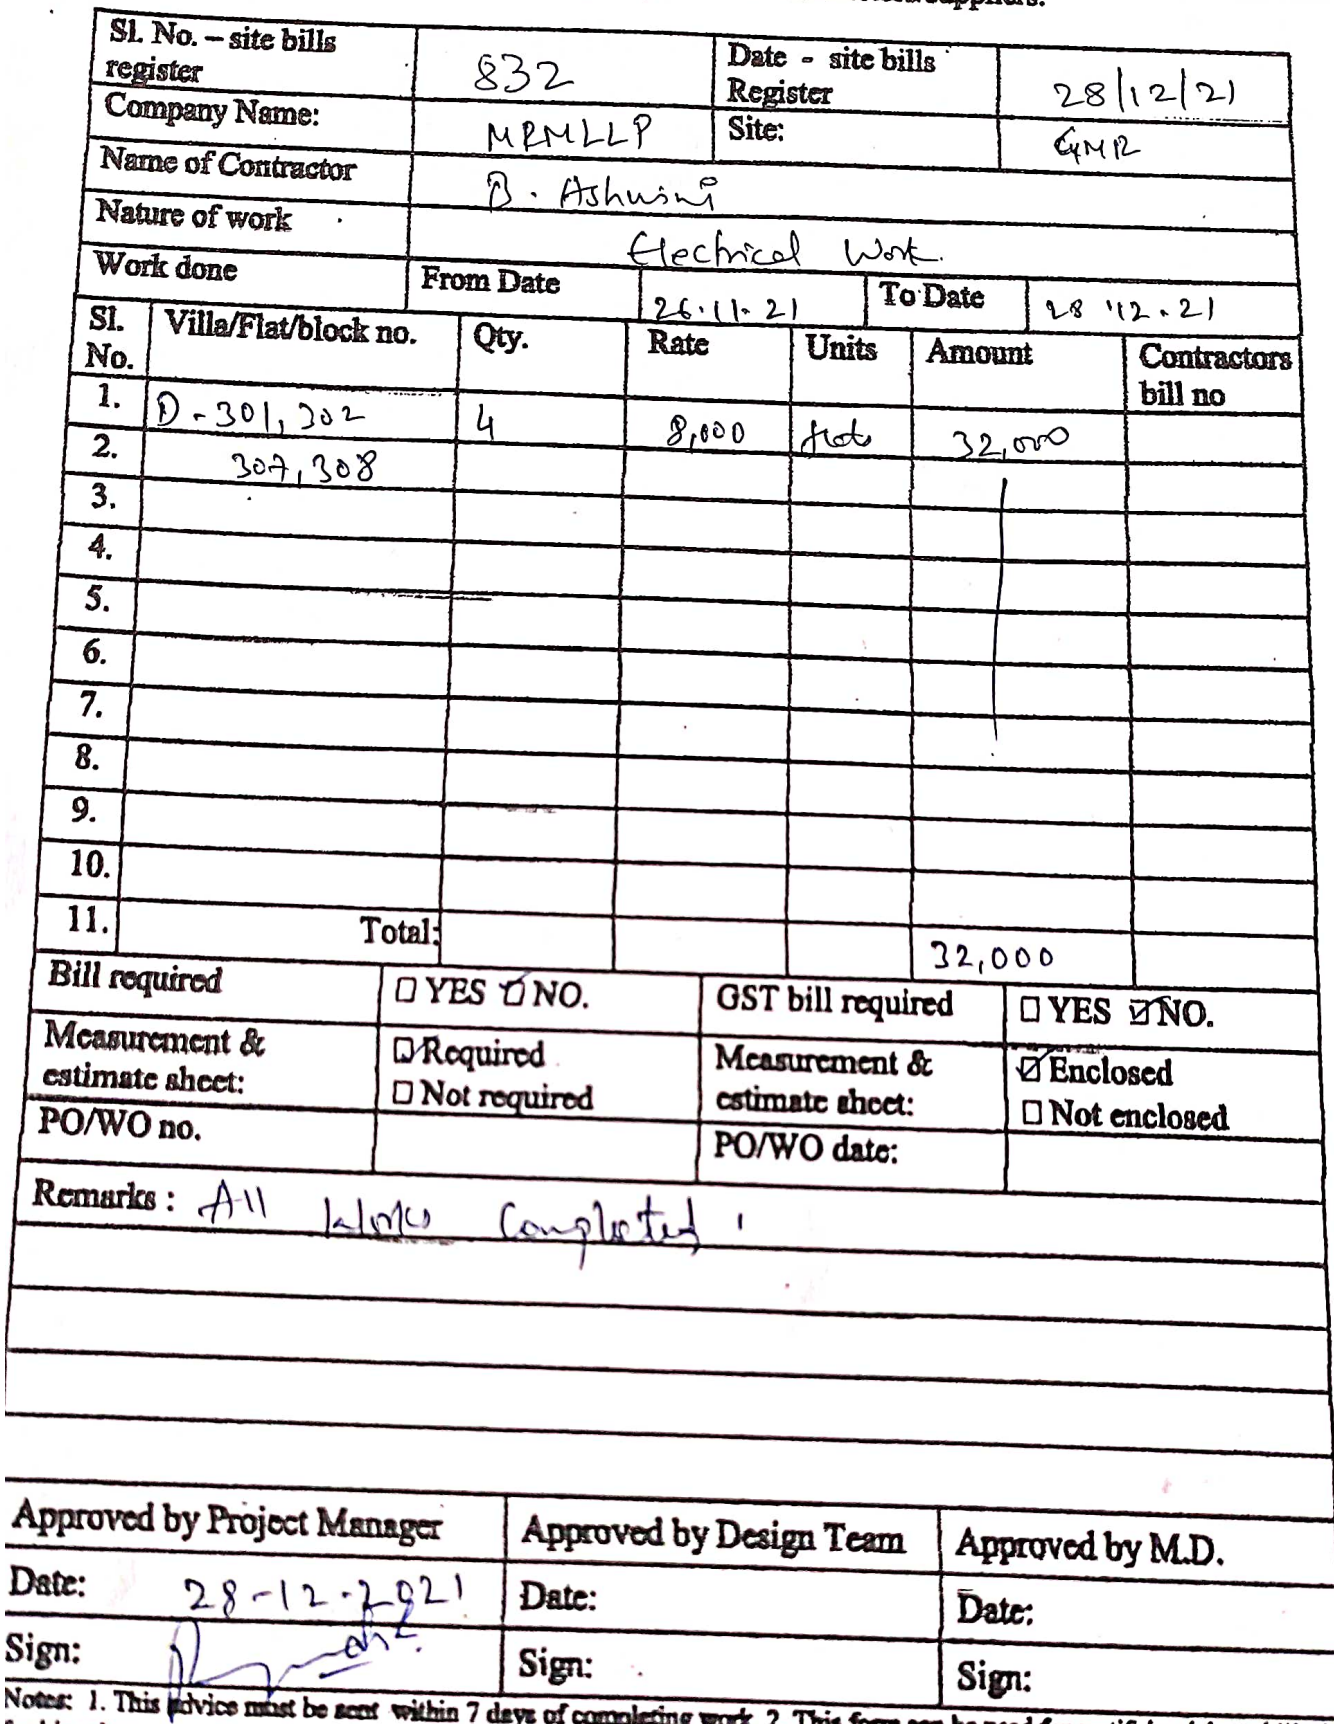 Sl. No. – site bills register 832 Date - site bills Register 28/12/21
Company Name: MRMLLP Site: GMR
Name of Contractor B. Ashwini
Nature of work Electrical Work.
Work done From Date 26.11.21 To Date 28.12.21
Sl. No. Villa/Flat/block no. Qty. Rate Units Amount Contractors bill no
1. D-301, 302 4 8,000 flats 32,000
2. 307, 308
3.
4.
5.
6.
7.
8.
9.
10.
11. Total: 32,000
Bill required ☐ YES ☑ NO. GST bill required ☐ YES ☑ NO.
Measurement & estimate sheet: ☑ Required ☐ Not required Measurement & estimate sheet: ☑ Enclosed ☐ Not enclosed
PO/WO no. PO/WO date:
Remarks : All works Completed
Approved by Project Manager Approved by Design Team Approved by M.D.
Date: 28-12-2021 Date: Date:
Sign: Sign: Sign:
Notes: 1. This advice must be sent within 7 days of completing work 2. This form can be